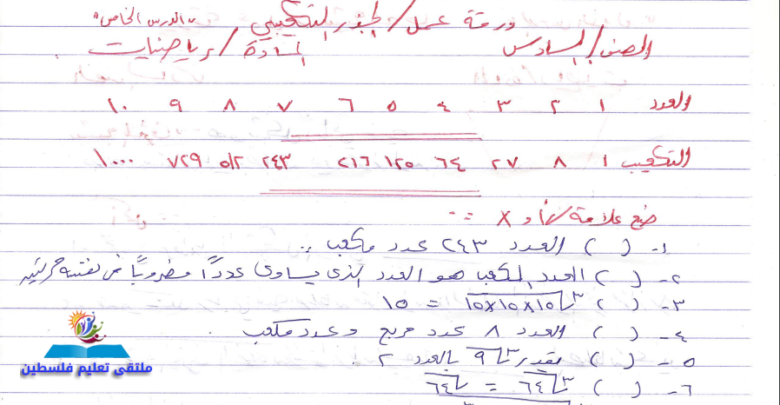 ورقة عمل / الجذر التكعيبي "الدرس الخامس"
الصف / السادس المادة / رياضيات
العدد ١ ٢ ٣ ٤ ٥ ٦ ٧ ٨ ٩ ١٠
التكعيب ١ ٨ ٢٧ ٦٤ ١٢٥ ٢١٦ ٢٤٣ ٥١٢ ٧٢٩ ١٠٠٠
ضع علامة √ أو X :-
١- ( ) العدد ٢٤٣ عدد مكعب .
٢- ( ) العدد المكعب هو العدد الذي يساوي عدداً مضروباً في نفسه مرتين
٣- ( ) ∛١٥×١٥×١٥ = ١٥
٤- ( ) العدد ٨ عدد مربع وعدد مكعب .
٥- ( ) يقدر ∛٩ بالعدد ٢
٦- ( ) ∛٦٤ = √٦٤
ملتقى تعليم فلسطين